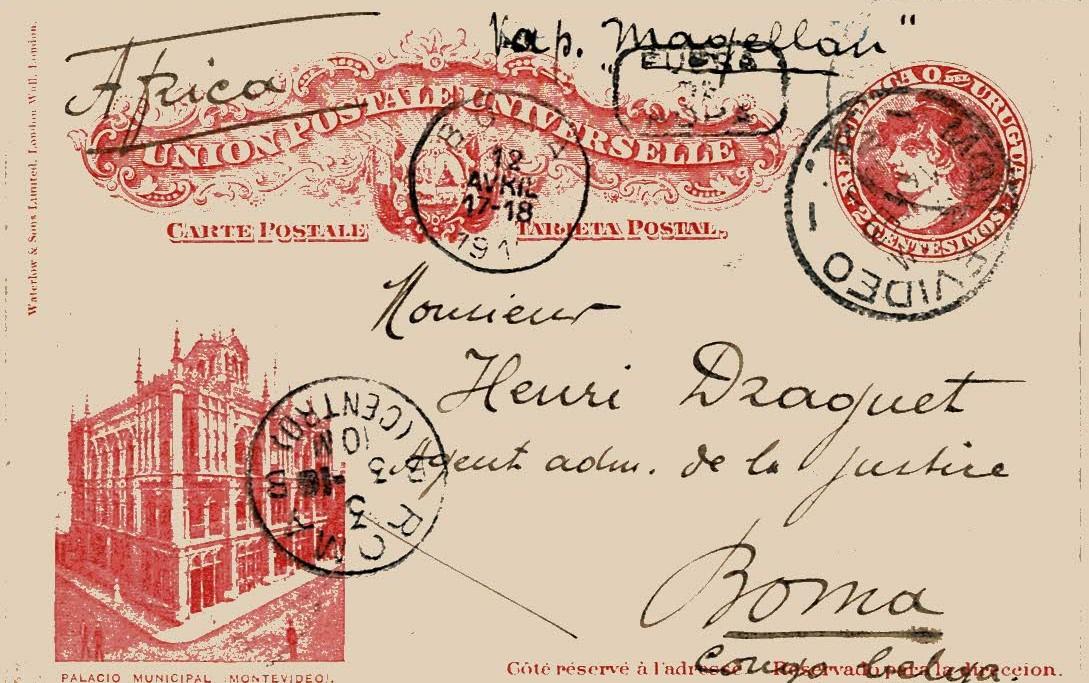 Vap. "Magellan"
Africa
Waterlow & Sons Limited, London Wall, London.
UNION POSTALE UNIVERSELLE
CARTE POSTALE
TARJETA POSTAL
BOMA
12
AVRIL
17-18
191
FUERA
DE
REPUBLICA O. DEL URUGUAY
2 CENTESIMOS
MONTEVIDEO
Monsieur
Henri Draguet
Agent adm. de la justice
Boma
Congo belge.
ROMA (CENTRO)
10 M
3
3
PALACIO MUNICIPAL (MONTEVIDEO).
Côté réservé à l'adresse - Reservado para la direccion.